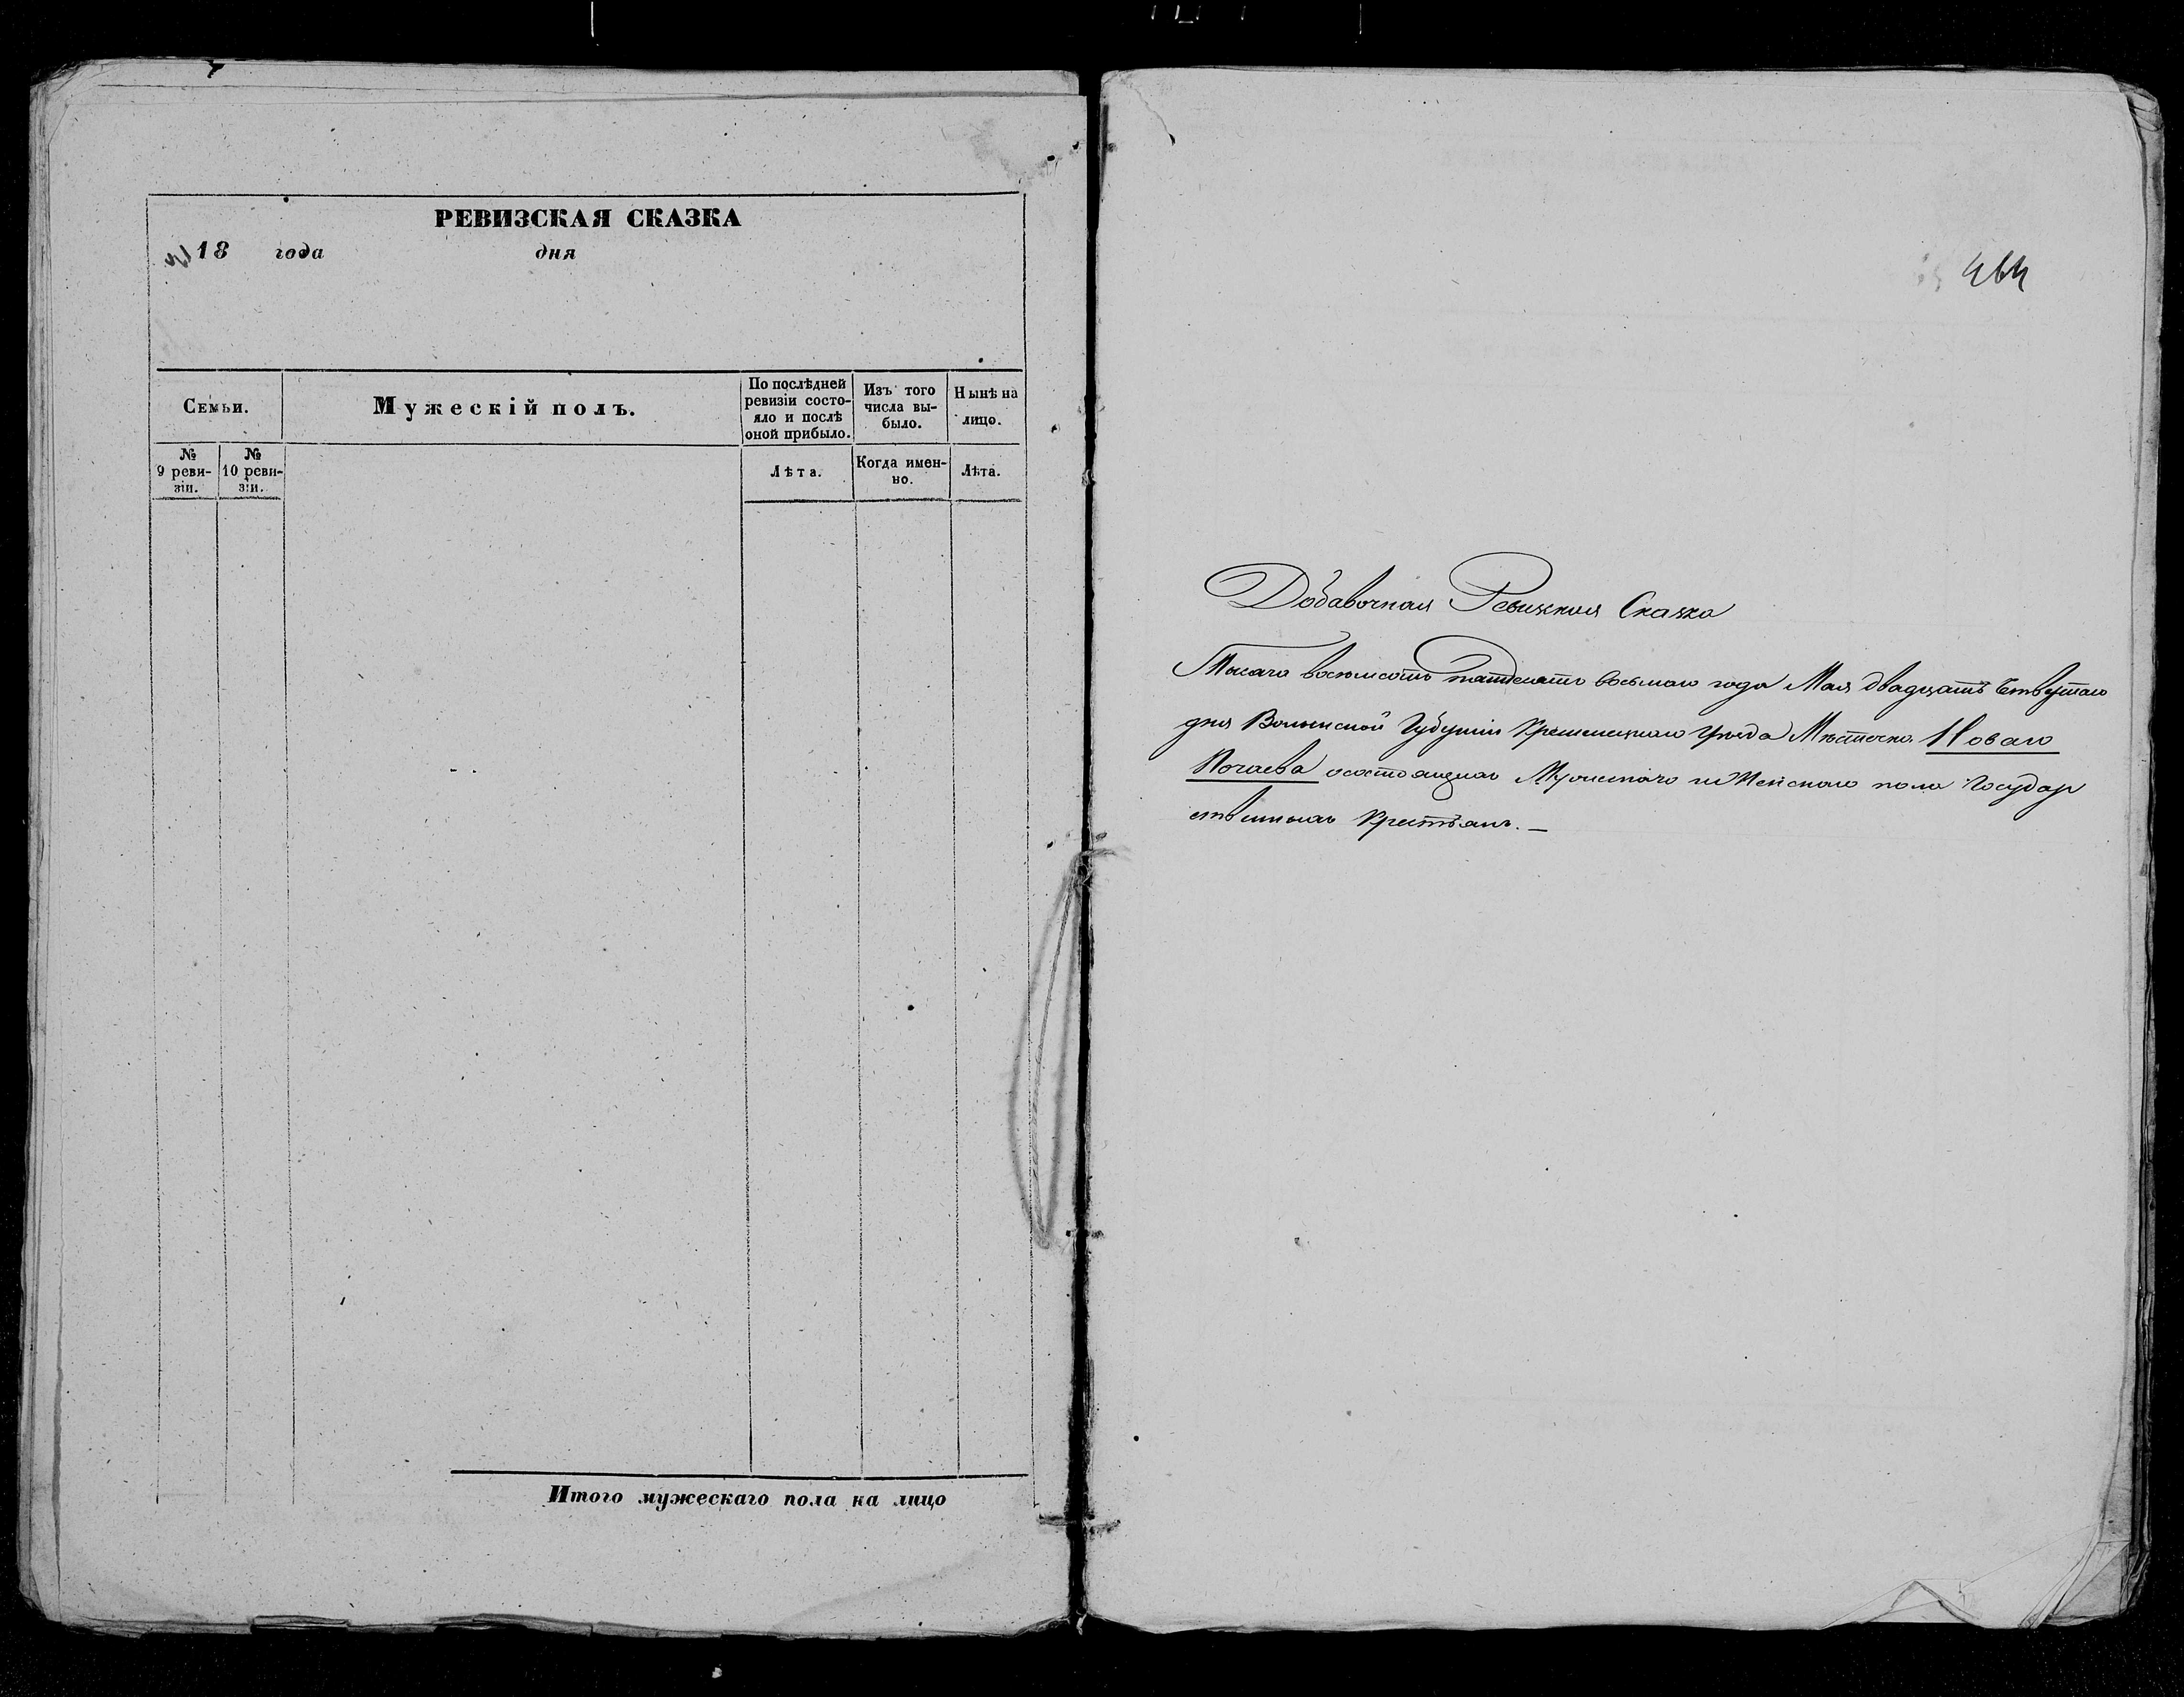 РЕВИЗСКАЯ СКАЗКА
18 года дня
Семьи.
Мужескій полъ.
По послѣдней
ревизіи состо-
яло и послѣ
оной прибыло.
Изъ того
числа вы-
было.
Нынѣ на
лицо.
№
9 реви-
зіи.
№
10 реви-
зіи.
Лѣта.
Когда имен-
но.
Лѣта.
Итого мужескаго пола на лицо
464
Добавочная Ревизкая Сказка
Тысяча восемсотъ пятдесятъ восьмаго года Мая двадцать
дня Волынской Губерніи Кременецкаго Уѣзда Мѣстечка Новаго
Почаева осостоящихъ Мужескаго и Женскаго пола Государ
ственныхъ Крестьянъ. —